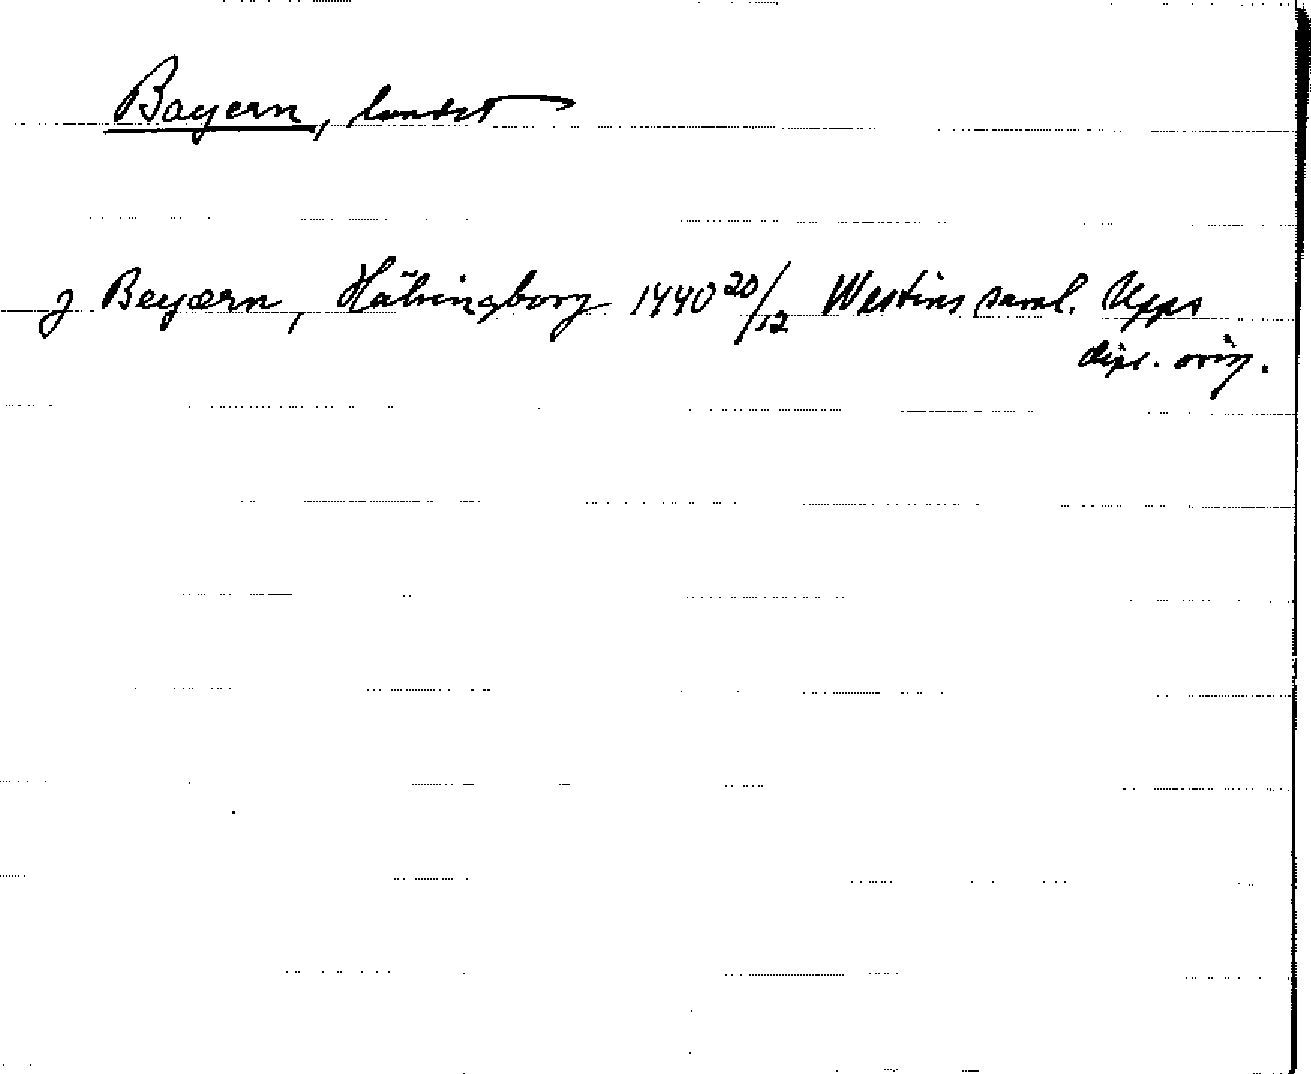 Bayern, landet
j Beyærn, Hälsingborg 1440 20/12 Westins saml. Upps
dipl. orig.